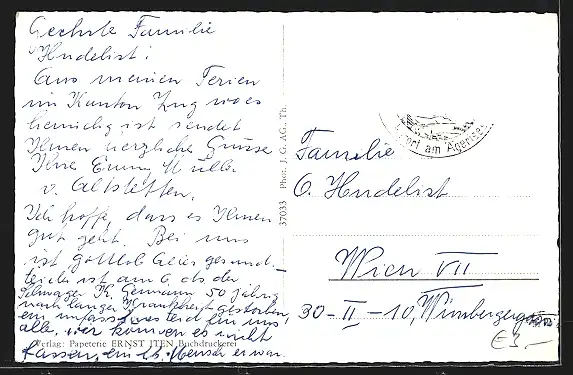 Geehrte Familie
Hudelist!
Aus meinen Ferien
im Kanton Zug wo es
heimelig ist sendet
Ihnen herzliche Grüsse
Ihre Emmy Müller
v. Altstetten.
Ich hoffe, dass es Ihnen
gut geht. Bei uns
ist gottlob alles gesund.
leider ist am 6. ds der
Schwager K. Gemann 50 jährig
nach langer Krankheit gestorben,
ein unfassbares Leid für uns
alle, wir können es nicht
fassen, ein lb. Mensch er war.
Verlag: Papeterie ERNST ITEN, Buchdruckerei
37033 Phot. J. G. AG. Th.
am Ägerisee
Familie
O. Hudelist
Wien VII
30-II-10, Wimbergergasse
€3.-